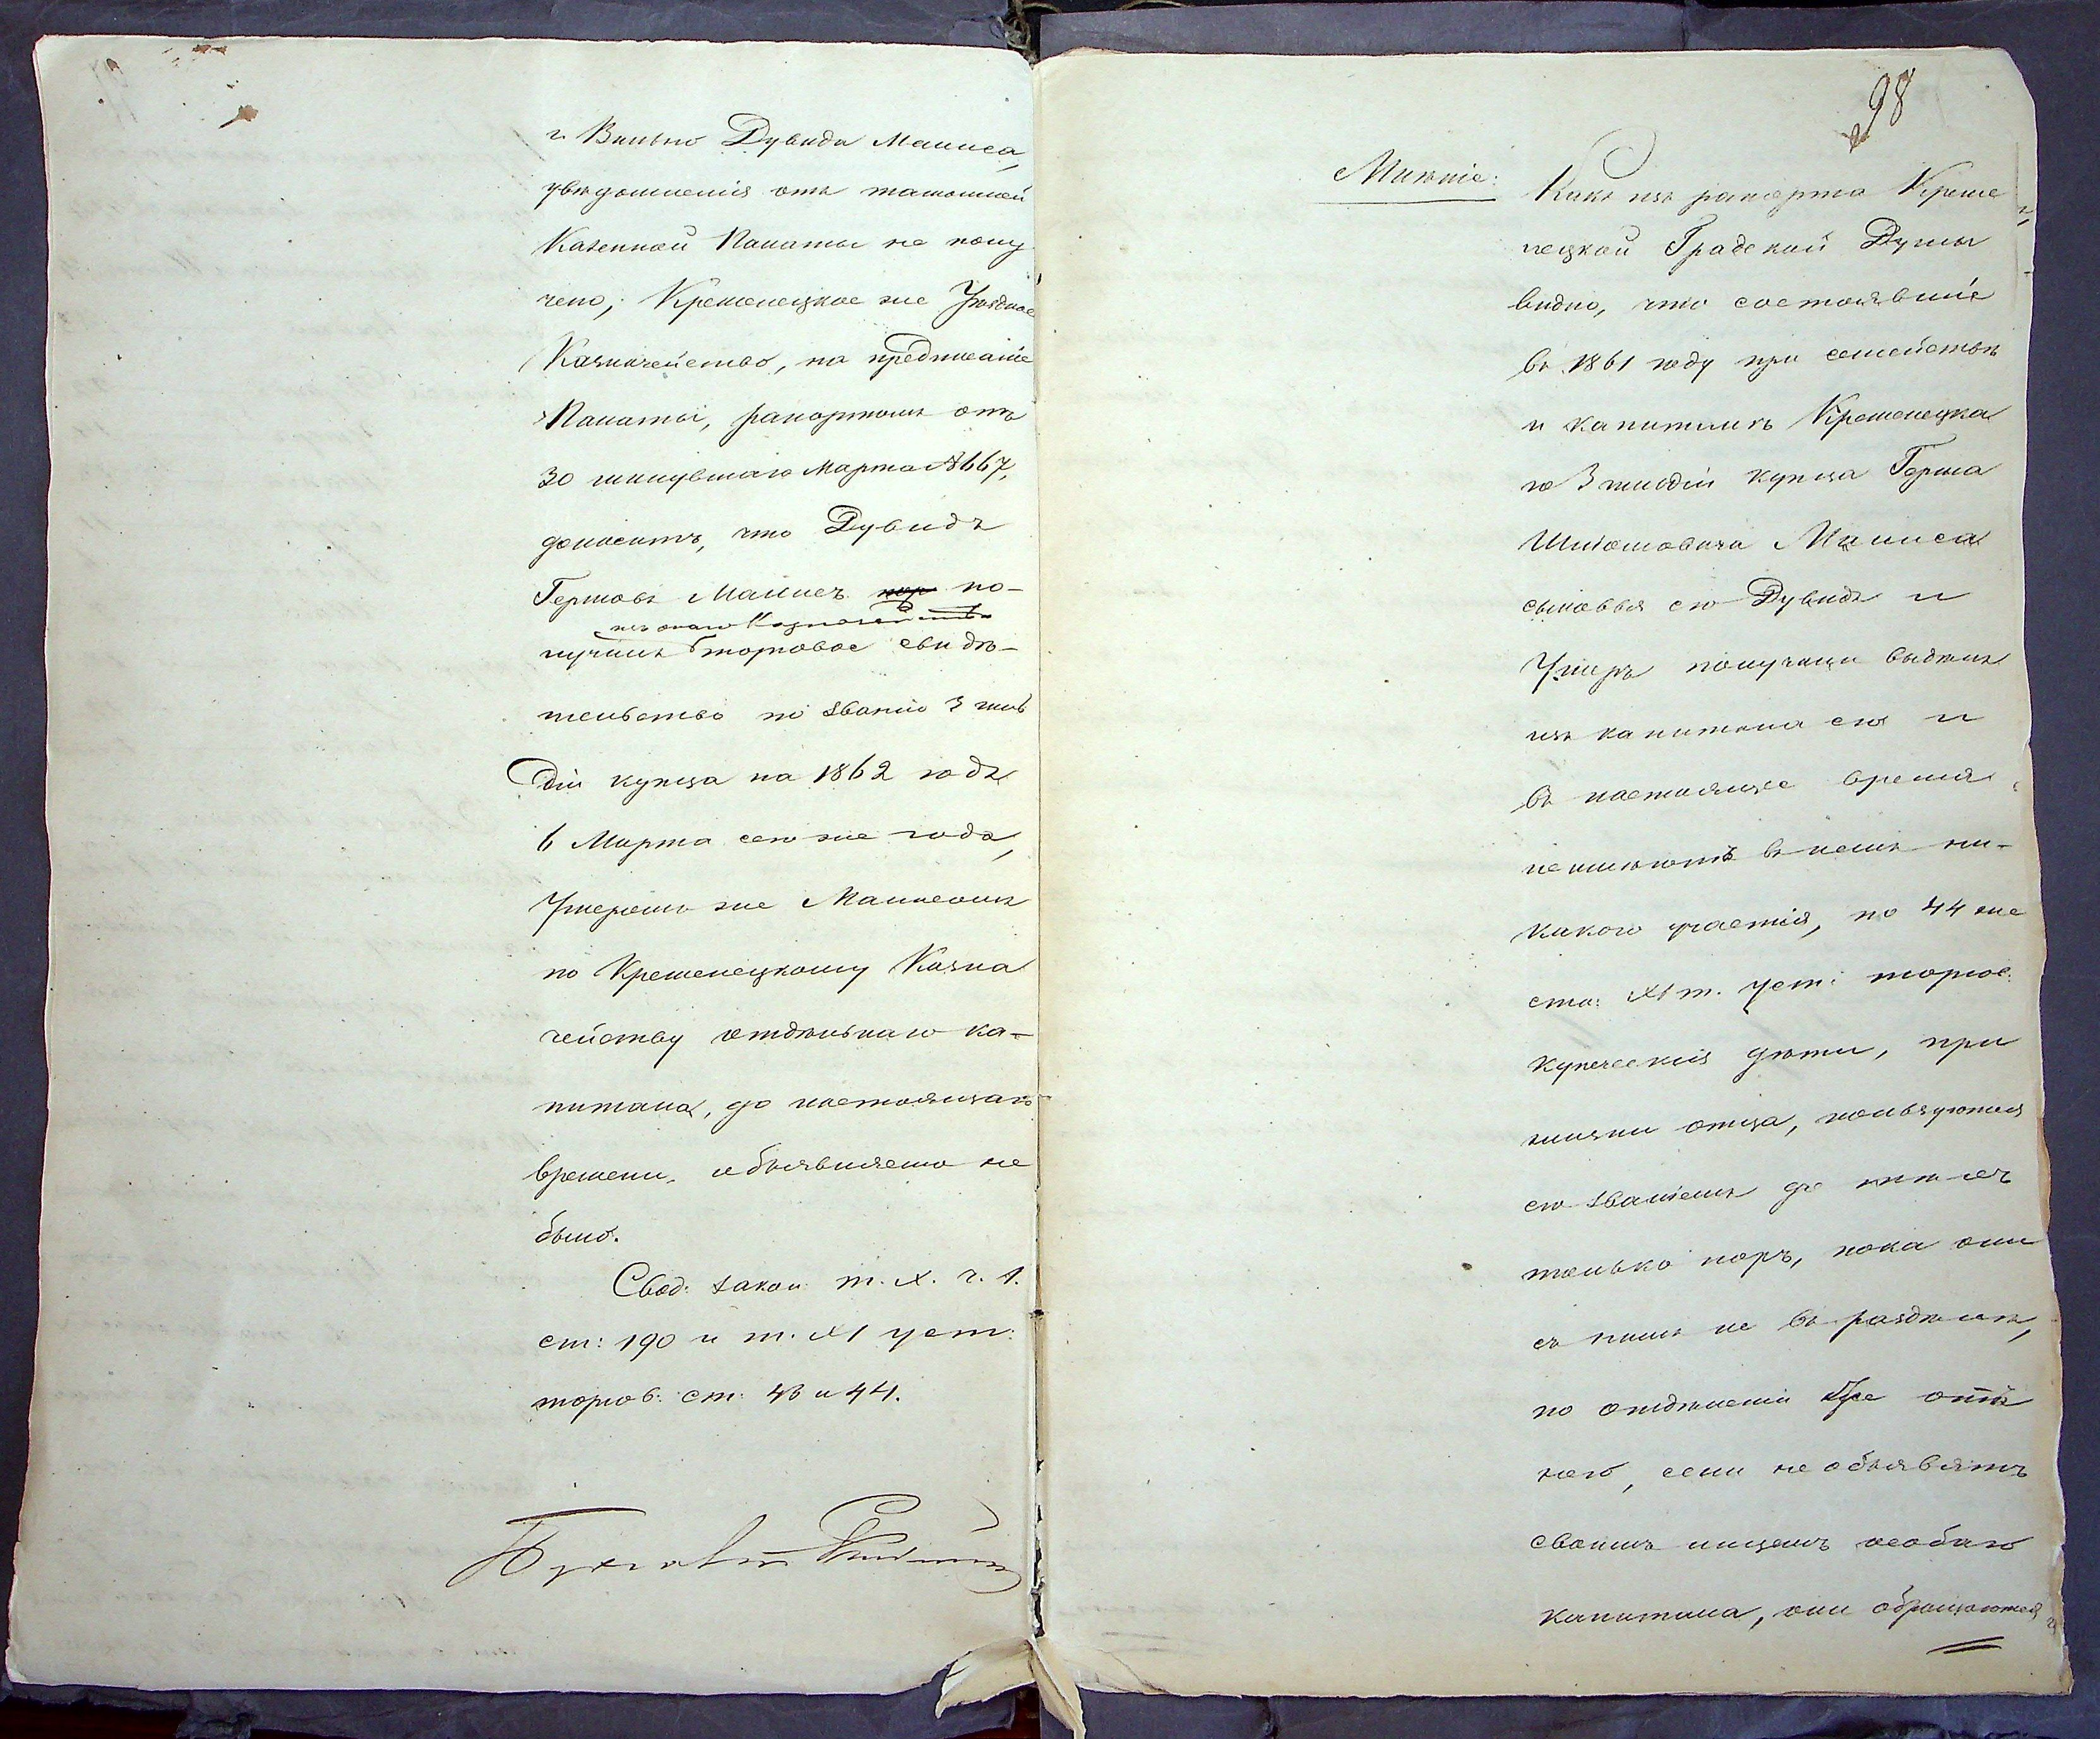 г. Вильно Дувида Маииса,
увѣдомленія отъ тамошней
Казенной Палаты не полу
чено; Кременецкое же Уѣздное
Казначейство, на предписаніе
Палаты, рапортомъ отъ
30 минувшаго Марта № 667,
доноситъ, что Дувидъ
Гершовъ Маиисъ по-
изъ онаго Казначейства
лучилъ торговое свидѣ-
тельство по званію 3 гиль
діи купца на 1862 годъ
6 Марта сего же года,
Умеромъ же Маиисомъ
по Кременецкому Казна
чейству отдѣльнаго ка-
питала, до настоящаго
времени, объявляемо не
было.
Свод: закон. т. X. ч. 1.
ст: 190 и т. XI уст:
торгов: ст. 43 и 44.
98
Мнѣніе:
Какъ изъ рапорта Креме
нецкой Градской Думы
видно, что состоявшіе
въ 1861 году при семействѣ
и капиталѣ Кременецка
го 3 гильдіи купца Герша
Шліомовича Маииса
сыновья его Дувидъ и
Умеръ получили выдѣлъ
изъ капитала его и
въ настоящее время
не имѣютъ въ немъ ни-
какого участія, по 44 же
ст: XI т. уст: торгов:
купеческія дѣти, при
жизни отца, пользуются
его званіемъ до тѣхъ
только поръ, пока они
съ нимъ не въ раздѣлѣ,
по отдѣленіи же отъ
него, если не объявятъ
своимъ лицемъ особаго
капитала, они обращаются